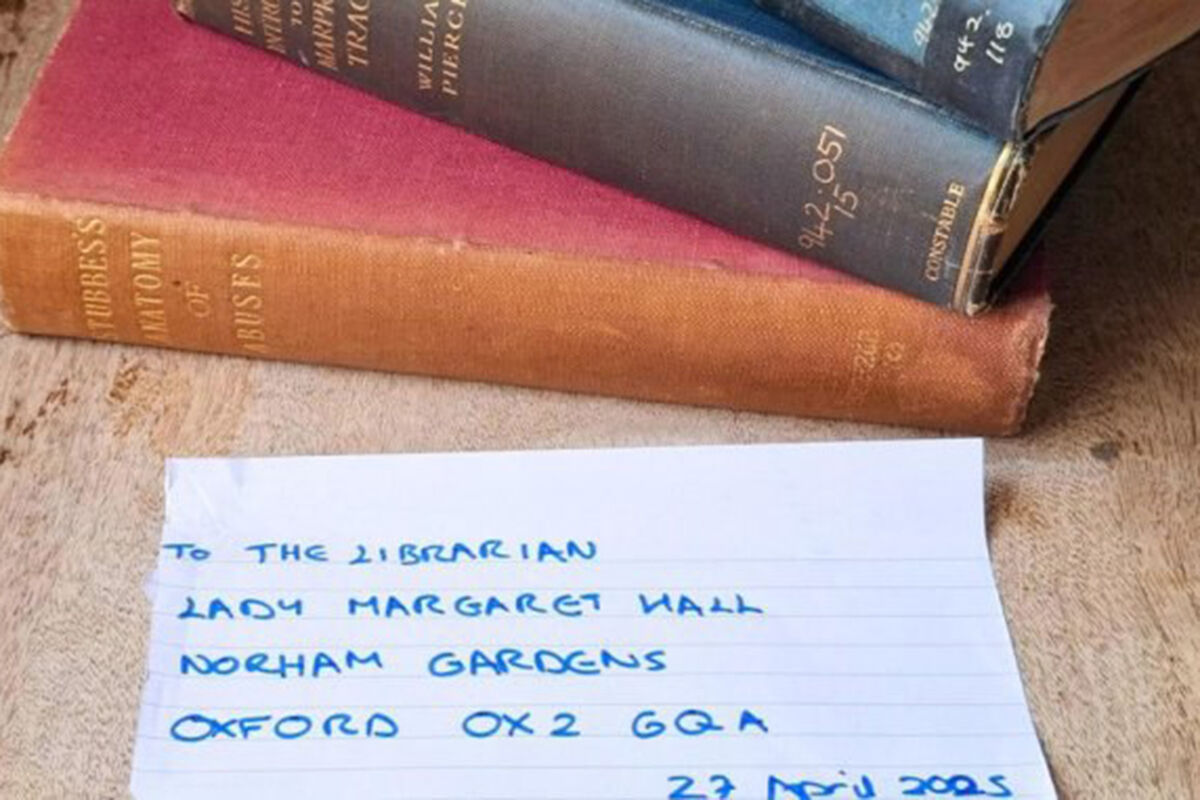 942.
118
HIS
INTRO
TO
MARPR
TRAC
WILLIA
PIERCE
942.051
15
CONSTABLE
STUBBES'S
ANATOMY
OF
ABUSES
TO THE LIBRARIAN
LADY MARGARET HALL
NORHAM GARDENS
OXFORD OX2 6QA
27 April 2025